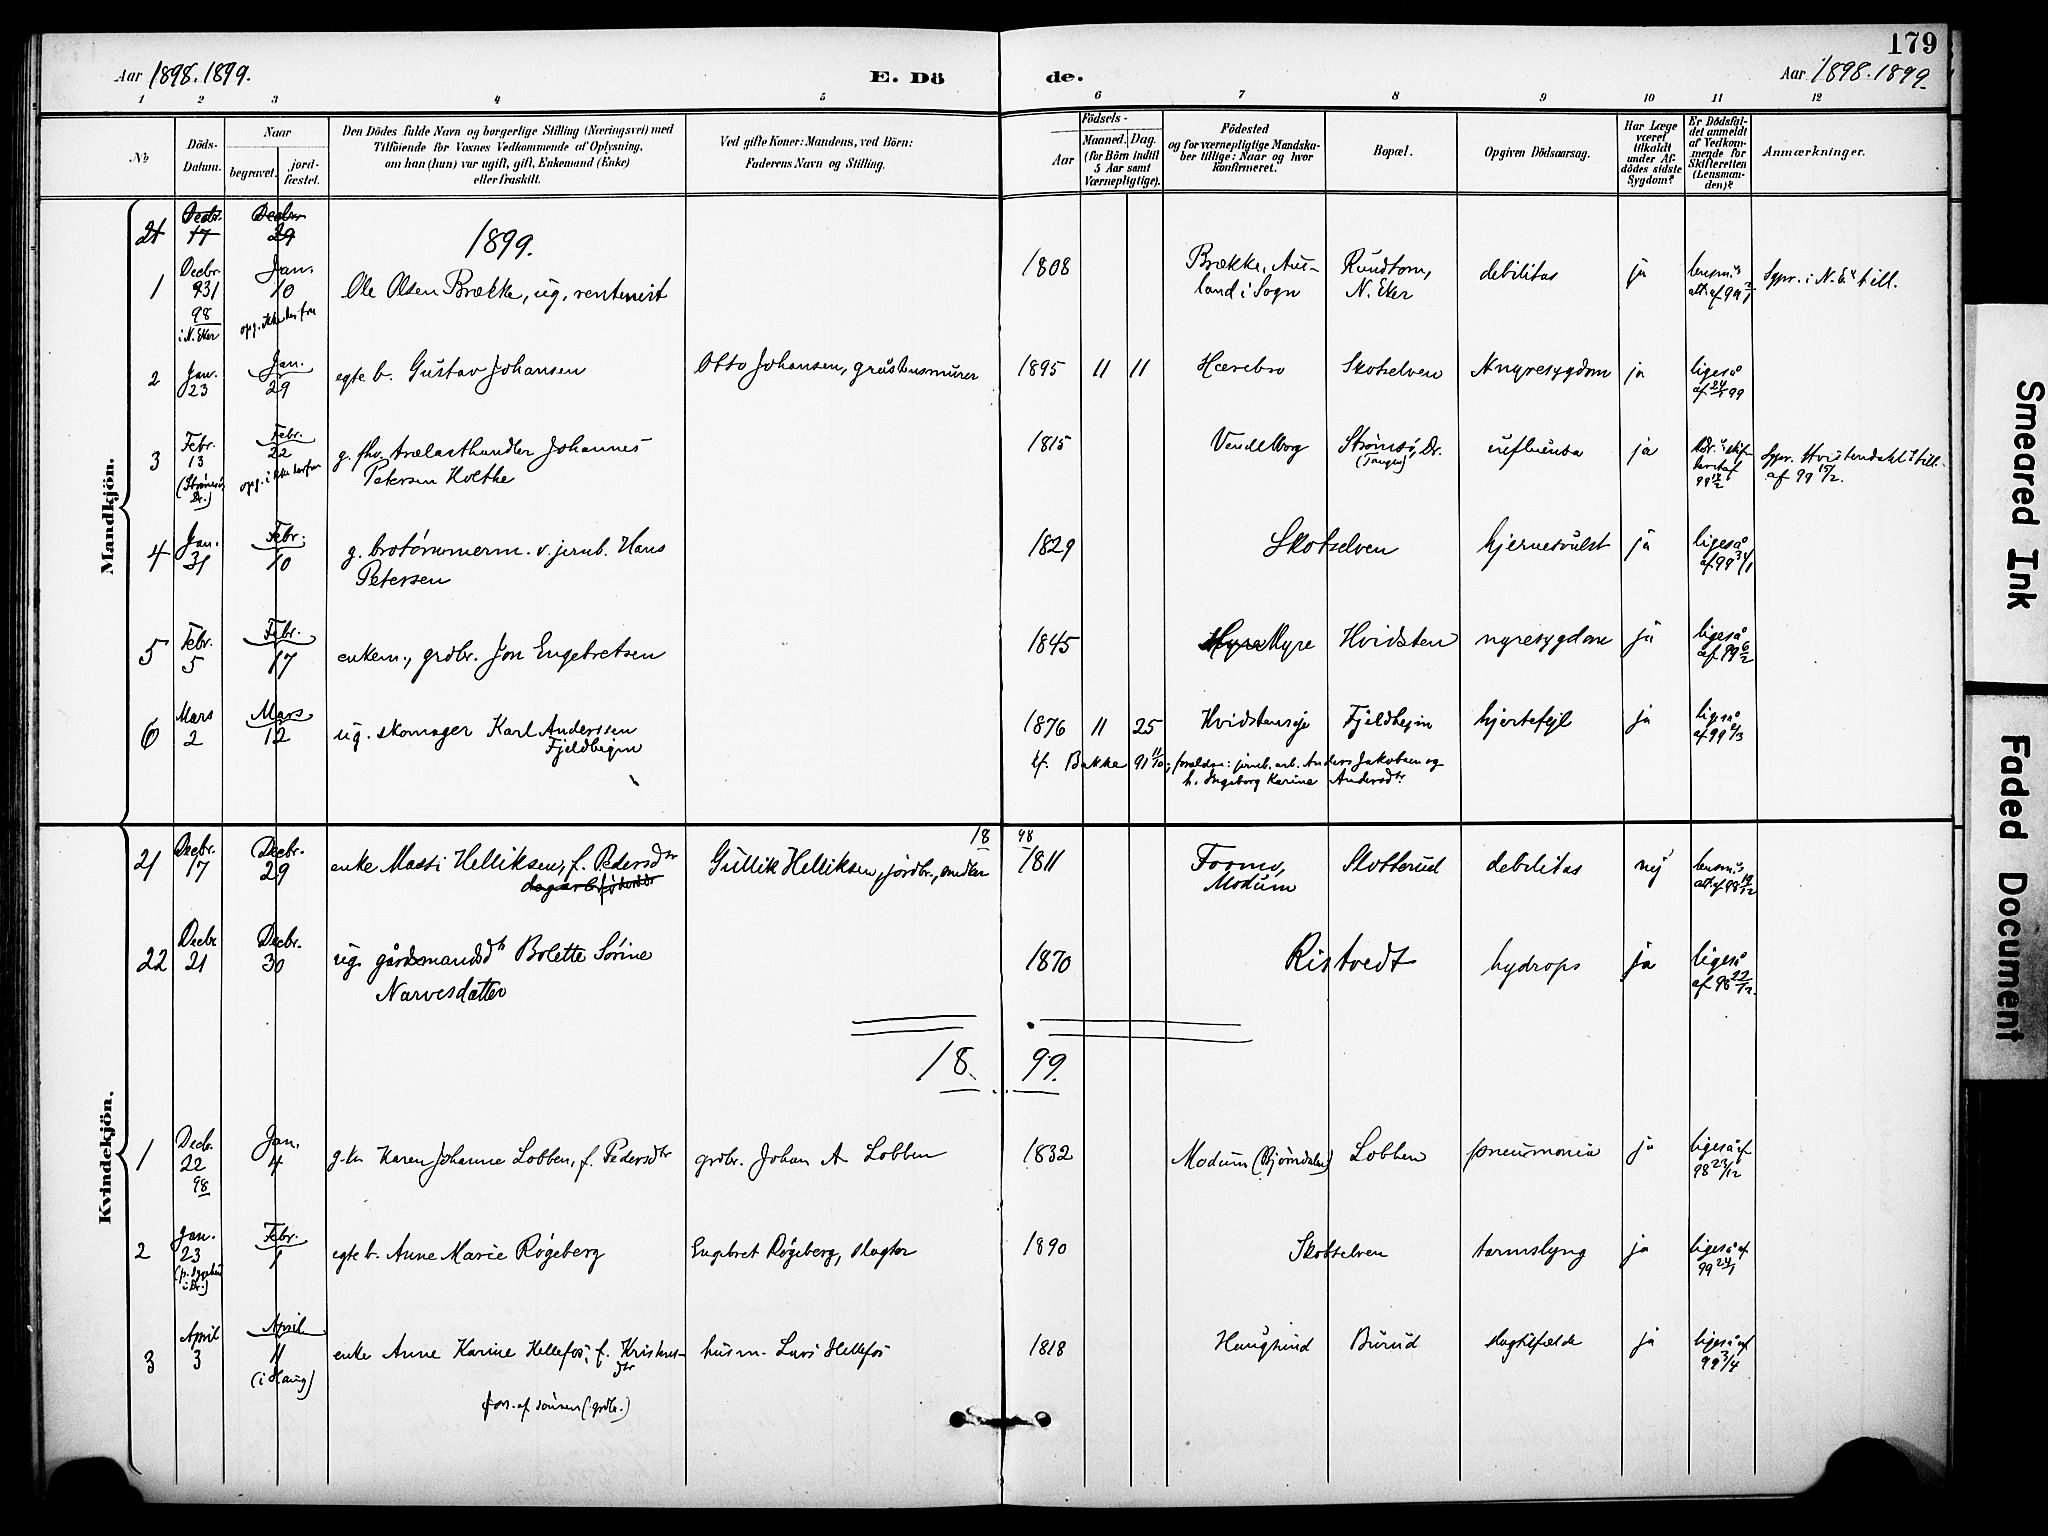 179
Aar 1898. 1899.
E. Dö
de.
Aar 1898. 1899.
1 2 3 4 5 6 7 8 9 10 11 12
No
Döds-
Datum.
Naar
begravet.
jord-
fæstet.
Den Dödes fulde Navn og borgerlige Stilling (Næringsvei) med
Tilföiende for Voxnes Vedkommende af Oplysning,
om han (hun) var ugift, gift, Enkemand (Enke)
eller fraskilt.
Ved gifte Koner: Mandens, ved Börn:
Faderens Navn og Stilling.
Födsels-
Aar
Maaned.
Dag.
(for Börn indtil
5 Aar samt
Værnepligtige).
Födested
og for værnepligtige Mandska-
ber tillige: Naar og hvor
Konfirmeret.
Bopæl.
Opgiven Dödsaarsag.
Har Læge
været
tilkaldt
under Af-
dödes sidste
Sygdom?
Er Dödsfal-
det anmeldt
af Vedkom-
mende for
Skifteretten
(Lensman-
den)?
Anmærkninger.
Mandkjön.
21 Decbr. 17 Decbr. 29
1899.
1 Decbr. 31 98 i N. Eker
Jan. 10 opg. ikke herfra
Ole Olsen Brække, ug. rentenist
1808
Brække, Aus-
land i Sogn
Rundtom,
N. Eker
debilitas
ja
lensm's
att. af 99
Spr. i N. E's till.
2 Jan. 23 Jan. 29
egte b. Gustav Johansen
Otto Johansen, gråstensmurer
1895 11 11
Hærebro
Skotselven
nyresygdom
ja
ligeså
af 24/1 99
3 Febr. 13 (Strømsø, Dr.)
Febr. 22 opg. ikke herfra
g. fhv. trælasthandler Johannes
Petersen Holtke
1815
Strømsø, Dr.
(Tangen)
influensa
ja
99
af 99 15/2.
4 Jan. 31 Febr. 10
g. brotømmerm. v. jernb. Hans
Petersen
1829
Skotselven
hjernesvulst
ja
ligeså
af 99 31/1
5 Febr. 5 Febr. 17
enkem., grdbr. Jon Engebretsen
1845
Myre
Hvidsten
nyresygdom
ja
ligeså
af 99 6/2
6 Mars 2 Mars 12
ug. skomager Karl Anderssen
Fjeldhegin
1876 11 25
Hvidsteneje
Fjeldhegin
hjertefejl
ja
ligeså
af 99
kf. Bakke 91 11/10; forældre: jernb. arb. Anders Jakobsen og
h. Ingeborg Karine Andersdtr
Kvindekjön.
18 98
21 Decbr. 17 Decbr. 29
enke Massi Helliksen, f. Pedersdtr
Gullik Helliksen, jordbr., snedker
1811
Formo,
Modum
Skotterud
debilitas
nej
lensm's
att. af 98 19/12
22 Decbr 21 Decbr. 30
ug. gårdsmandsdtr Bolette Sørine
Narvesdatter
1870
Ristvedt
hydrops
ja
ligeså
af 98 22/12.
18. 99.
1 Decbr. 22 98 Jan. 4
g. k. Karen Johanne Lobben, f. Pedersdtr
grdbr. Johan A Lobben
1832
Modum (Bjørndalen)
Lobben
pneumonia
ja
ligeså af
98 23/12
2 Jan. 23 (p. sygehus i Dr.)
Febr. 1
egte b. Anne Marie Røgeberg
Engebret Røgeberg, slagter
1890
Skotselven
tarmslyng
ja
ligeså af
99 24/1
3 April 3 April 11 (i Haug)
enke Anne Karine Hellefos, f. Kristens-
dtr
husm. Lars Hellefos
1818
Haugsund
Burud
slagtilfælde
ja
ligeså af
99 3/4
fors. af sønnen (: grdbr.)
Smeared Ink
Faded Document